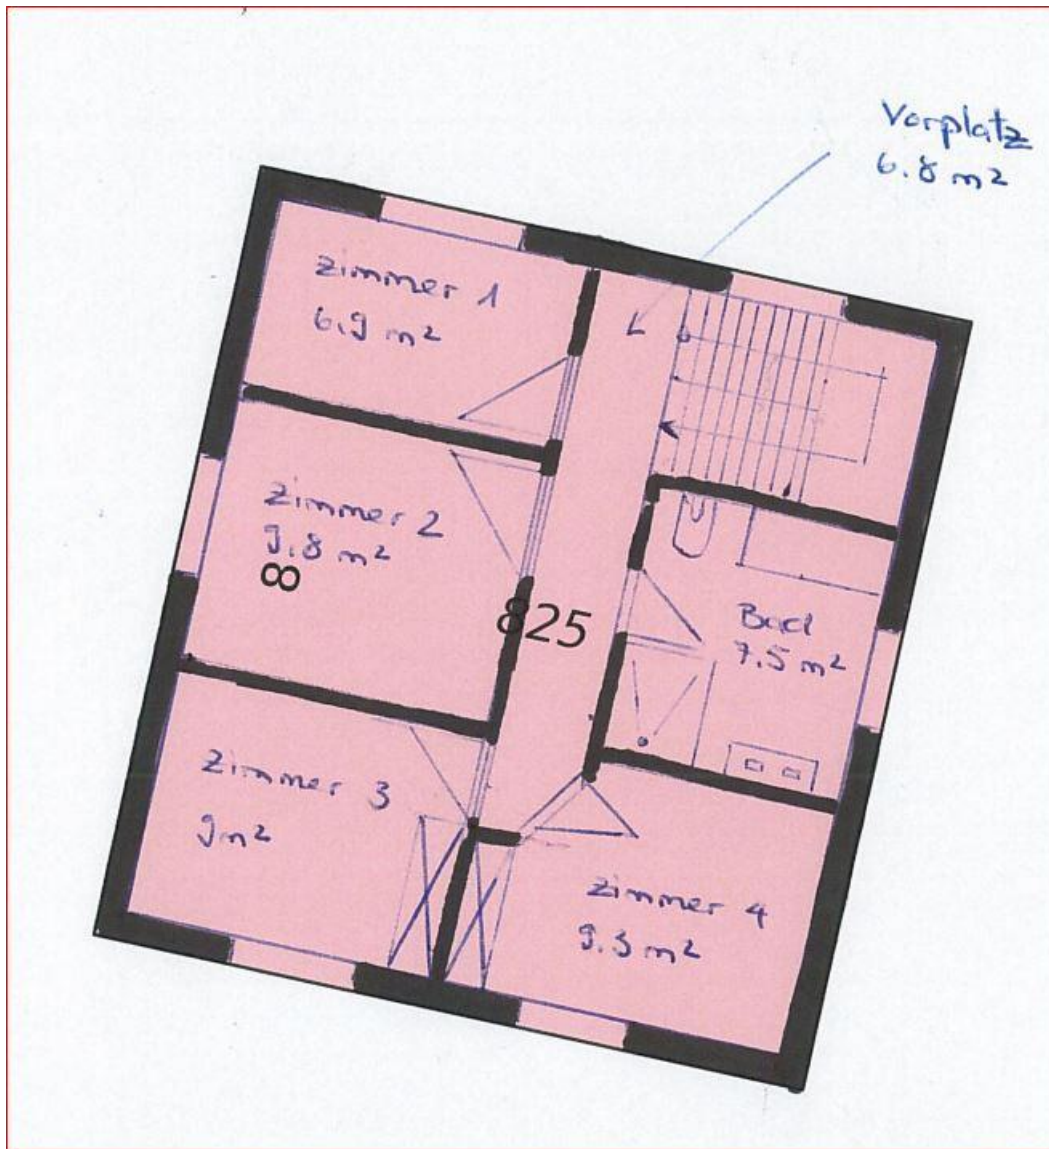 Vorplatz
6.8 m²
Zimmer 1
6.9 m²
Zimmer 2
9.8 m²
8
825
Bad
7.5 m²
Zimmer 3
9m²
Zimmer 4
9.3 m²